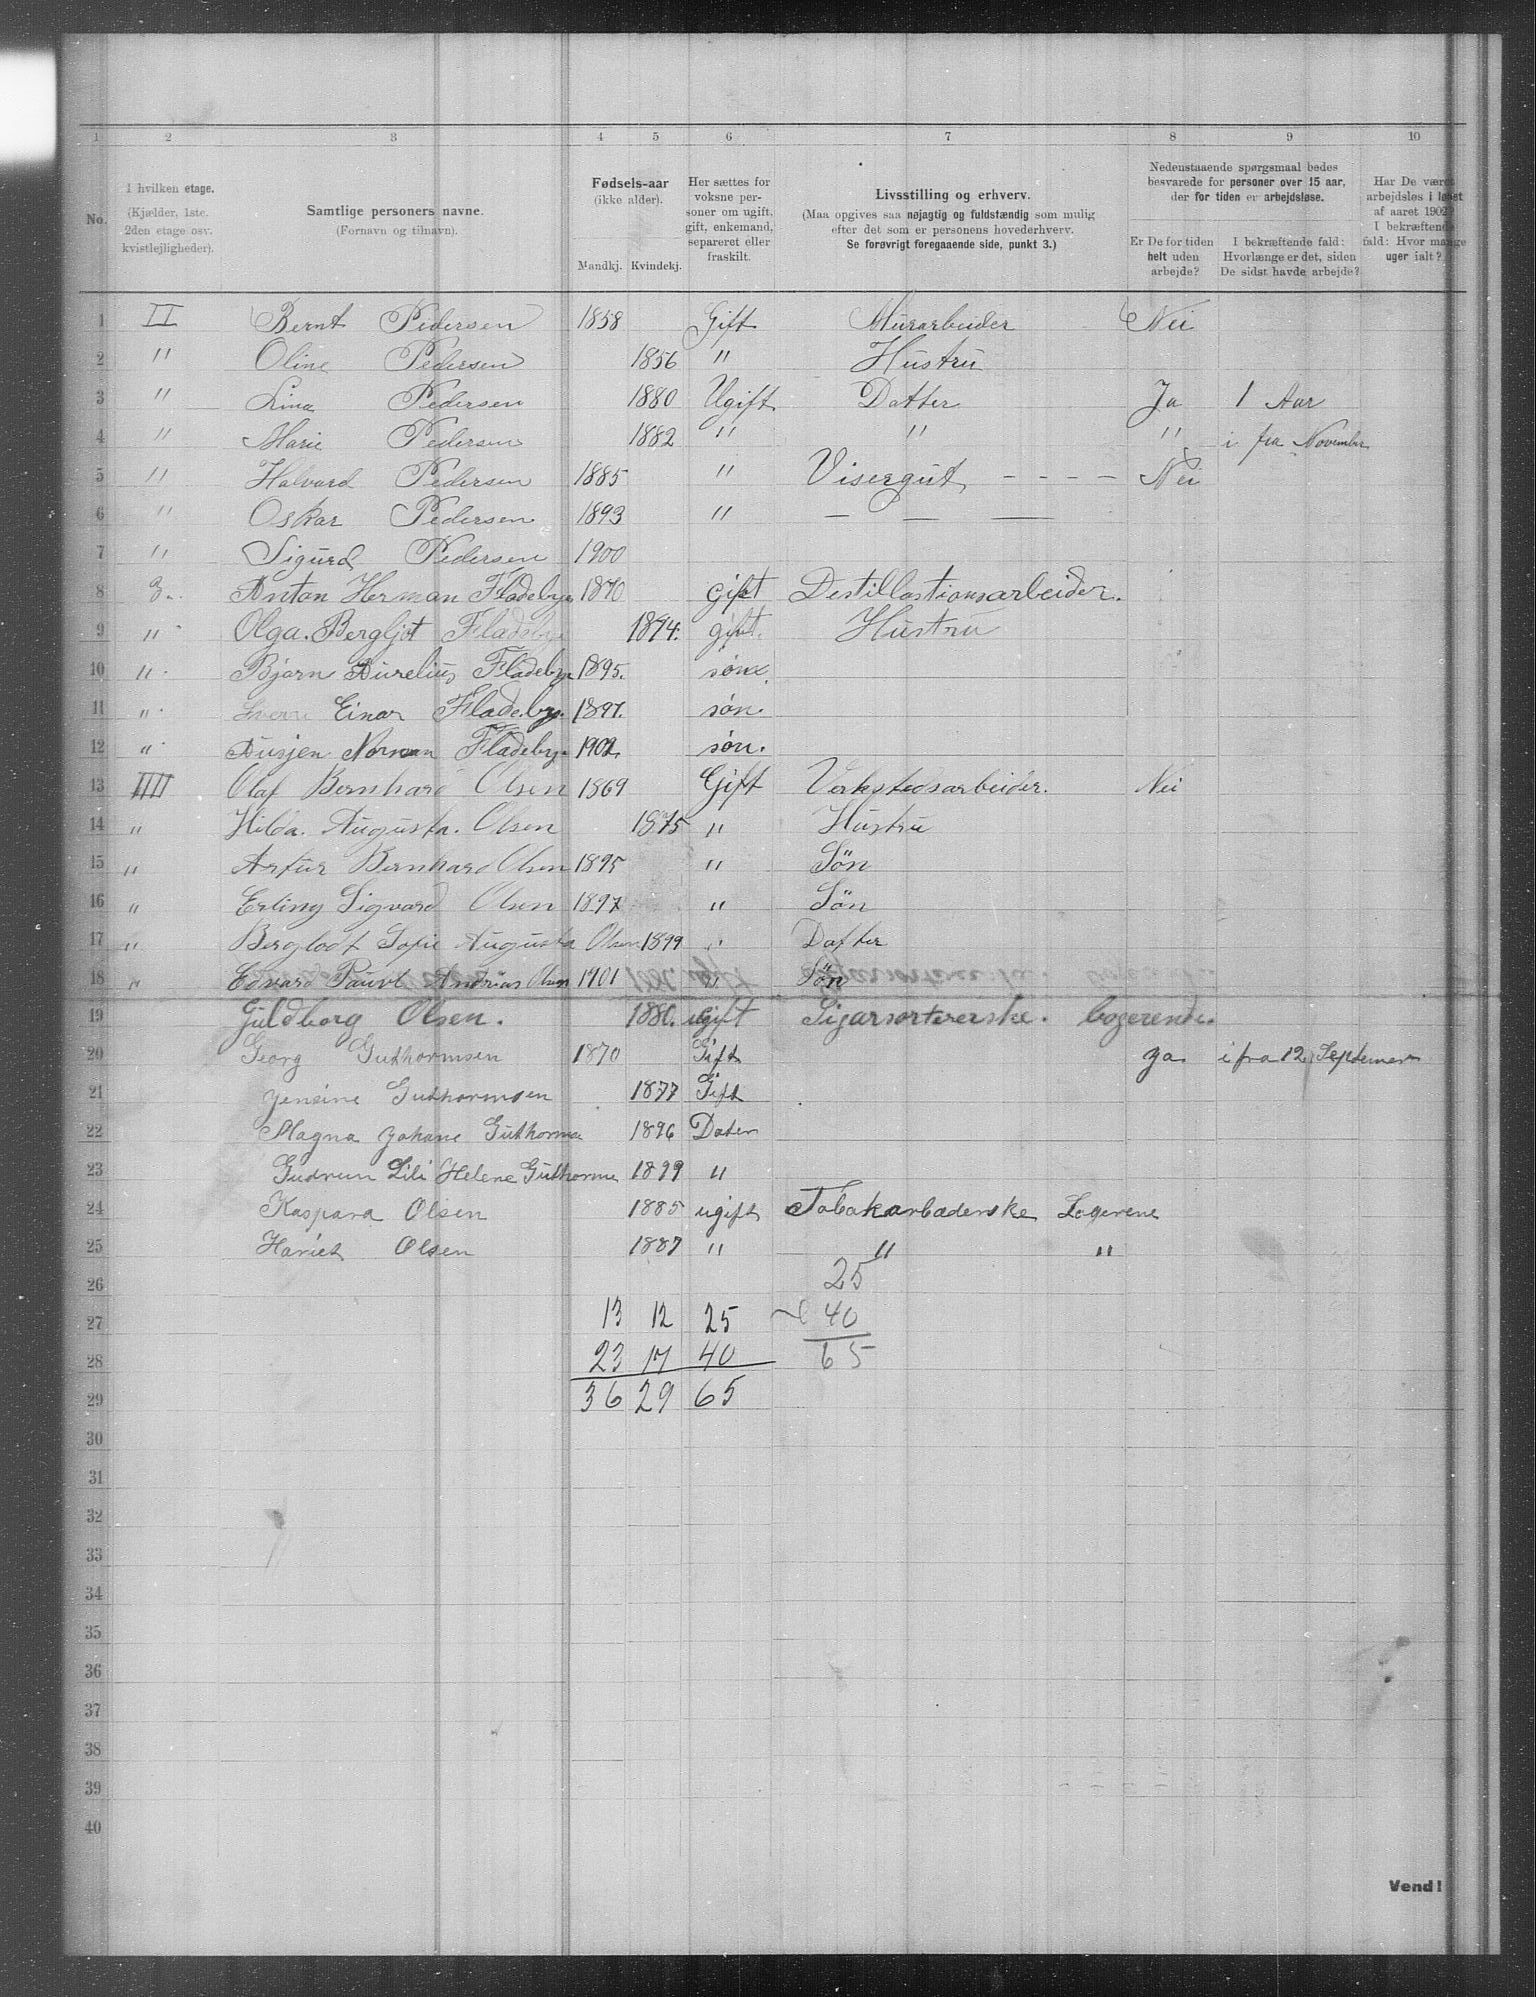 1 2 3 4 5 6 7 8 9 10
No.
I hvilken etage.
(Kjælder, 1ste.
2den etage osv.
kvistlejligheder).
Samtlige personers navne.
(Fornavn og tilnavn).
Fødsels-aar
(ikke alder).
Mandkj. Kvindekj.
Her sættes for
voksne per-
soner om ugift,
gift, enkemand,
separeret eller
fraskilt.
Livsstilling og erhverv.
(Maa opgives saa nøjagtig og fuldstændig som mulig
efter det som er personens hovederhverv.
Se forøvrigt foregaaende side, punkt 3.)
Nedenstaaende spørgsmaal bedes
besvarede for personer over 15 aar,
der for tiden er arbejdsløse.
Er De for tiden
helt uden
arbejde?
I bekræftende fald:
Hvorlænge er det, siden
De sidst havde arbejde?
Har De været
arbejdsløs i løbet
af aaret 1902?
I bekræftende
fald: Hvor mange
uger ialt?
1 II Bernt Pedersen 1858 Gift Murarbeider Nei
2 " Oline Pedersen 1856 " Hustru
3 " Lina Pedersen 1880 Ugift Datter Ja 1 Aar
4 " Marie Pedersen 1882 " " " i fra November
5 " Halvard Pedersen 1885 " Visergut - - - - Nei
6 " Oskar Pedersen 1893 " — — —
7 " Sigurd Pedersen 1900
8 3. Anton Herman Fladebye 1870 gift Destillastionsarbeider.
9 " Olga. Bergljot Fladeby 1874. gift. Hustru
10 " Bjarn Aurelius Fladebye 1895. søn.
11 " Sverre Einar Fladeby. 1897. søn.
12 " Norman Fladebye 1902. søn.
13 IIII Olaf Bernhard Olsen 1869 Gift Verkstedsarbeider. Nei
14 " Hilda. Augusta. Olsen 1875 " Hustru
15 " Artur Bernhard Olsen 1895 " Sön
16 " Erling Sigvard Olsen 1897 " Sön
17 " Berglodt Sofie Augusta Olsen 1899 " Datter
18 " Edvard Pauvl Andrias Olsen 1901 " Sön
19 Guldborg Olsen. 1880. ugift Sigarsortererske. logerende.
20 Georg Guthormsen 1870 Gift ja i fra 12 Septemer
21 Jensine Guthormsen 1877 Gift
22 Magna Johane Guthorms 1896 Dater
23 Gudrun Lili Helene Guthorms 1899 "
24 Kaspara Olsen 1885 ugift Tobakarbaderske Logerene
25 Hariet Olsen 1887 " " "
26 25
27 13 12 25 40
28 23 17 40 65
29 36 29 65
30
31
32
33
34
35
36
37
38
39
40
Vend!